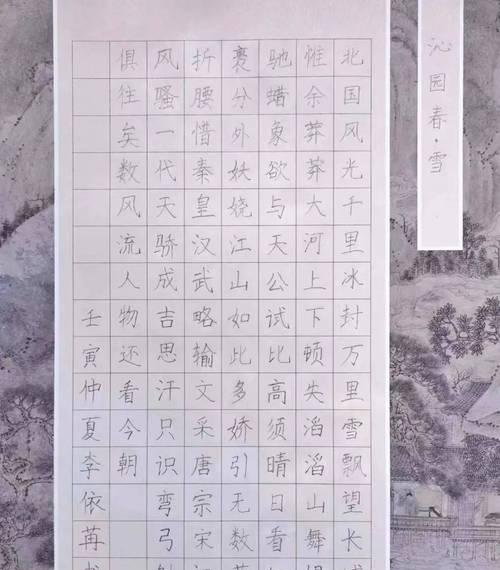 沁园春·雪
北国风光千里冰封万里雪飘望长
惟余莽莽大河上下顿失滔滔山舞
驰蜡象欲与天公试比高须晴日看
裹分外妖娆江山如此多娇引无数
折腰惜秦皇汉武略输文采唐宗宋
风骚一代天骄成吉思汗只识弯弓
俱往矣数风流人物还看今朝
壬寅仲夏李依苒